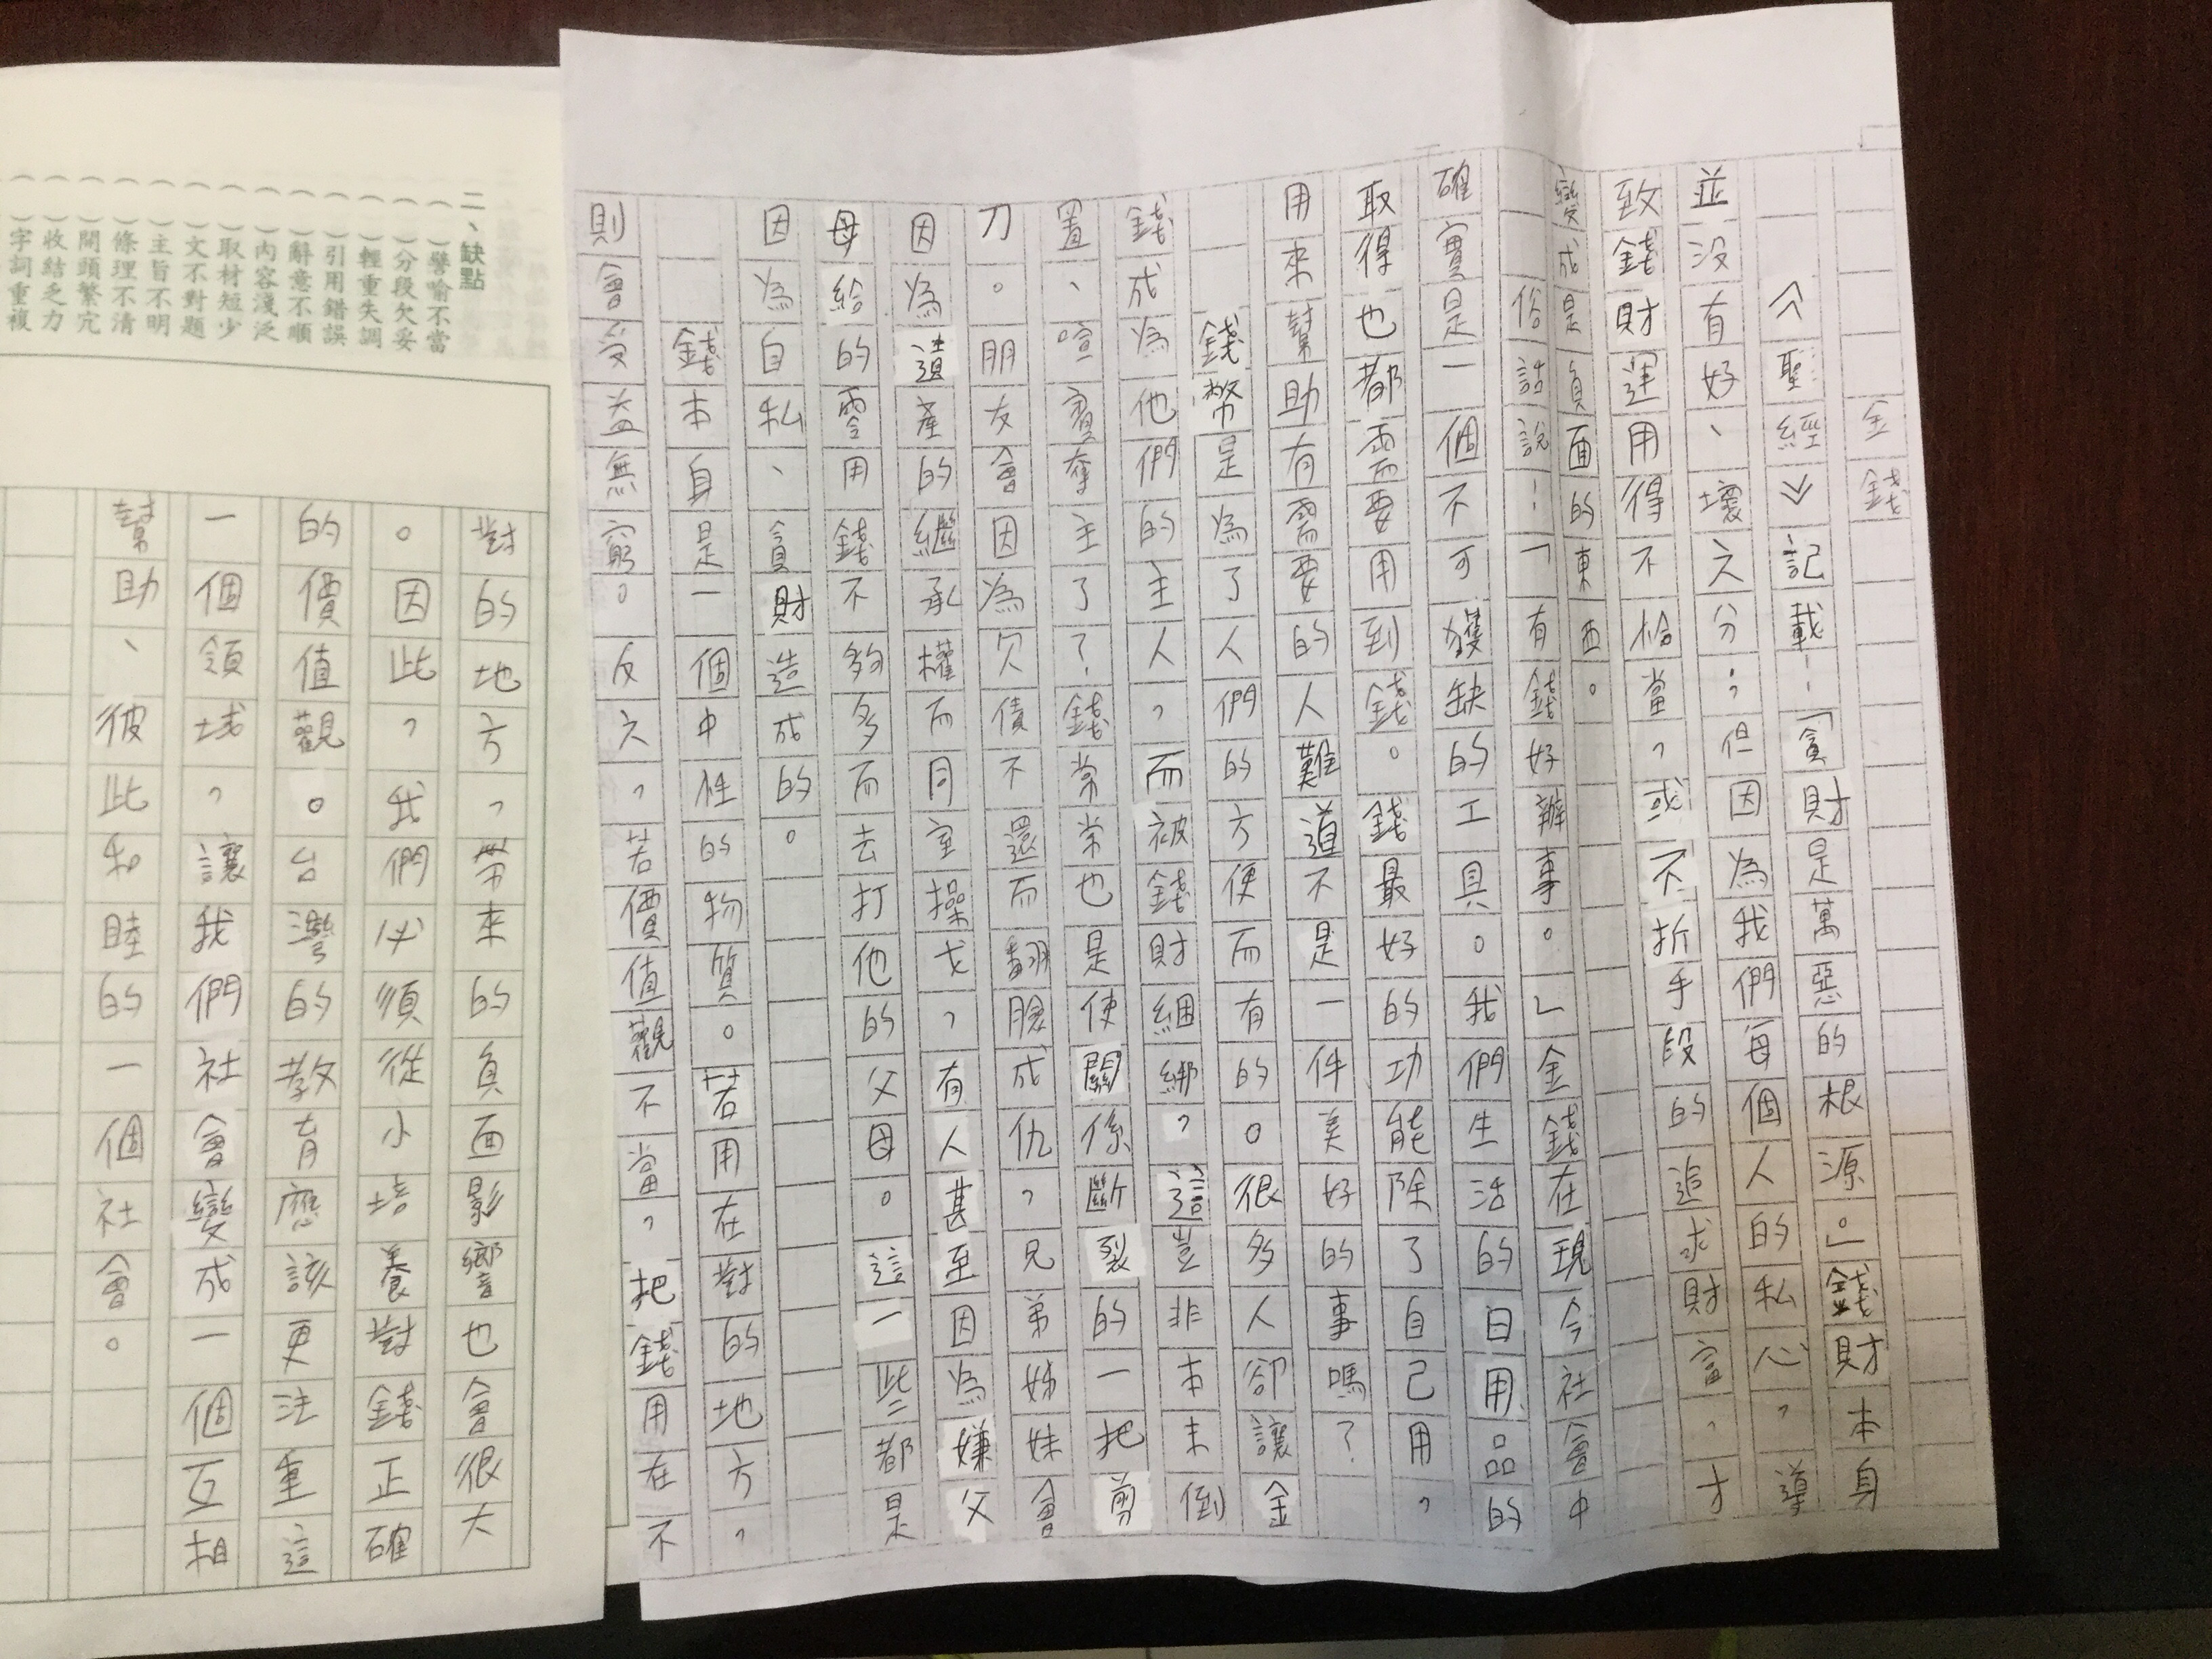 金錢
《聖經》記載:「貪財是萬惡的根源。」錢財本身
並沒有好、壞之分;但因為我們每個人的私心,導
致錢財運用得不恰當,或不折手段的追求財富,才
變成是負面的東西。
俗話說:「有錢好辦事。」金錢在現今社會中
確實是一個不可獲缺的工具。我們生活的日用品的
取得也都需要用到錢。錢最好的功能除了自己用,
用來幫助有需要的人難道不是一件美好的事嗎?
錢幣是為了人們的方便而有的。很多人卻讓金
錢成為他們的主人,而被錢財綑綁,這豈非本末倒
置、喧賓奪主了?錢常常也是使關係斷裂的一把剪
刀。朋友會因為欠債不還而翻臉成仇,兄弟姊妹會
因為遺產的繼承權而同室操戈,有人甚至因為嫌父
母給的零用錢不夠多而去打他的父母。這一些都是
因為自私、貪財造成的。
錢本身是一個中性的物質。若用在對的地方,
則會受益無窮。反之,若價值觀不當,把錢用在不
對的地方,帶來的負面影響也會很大
。因此,我們必須從小培養對錢正確
的價值觀。台灣的教育應該更注重這
一個領域,讓我們社會變成一個互相
幫助、彼此和睦的一個社會。
二、缺點
( )譬喻不當
( )分段欠妥
( )輕重失調
( )引用錯誤
( )辭意不順
( )內容淺泛
( )取材短少
( )文不對題
( )主旨不明
( )條理不清
( )開頭繁冗
( )收結乏力
( )字詞重複